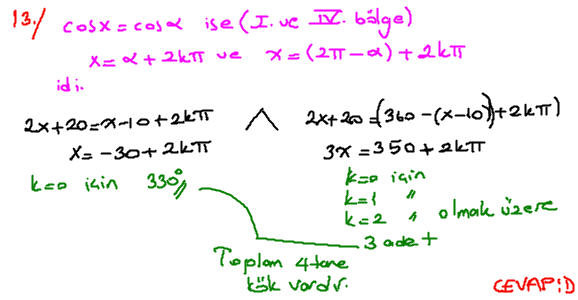 13./ cosx = cosα ise (I. ve IV. bölge)
x = α + 2kπ ve x = (2π - α) + 2kπ
idi.
2x+20 = x-10+2kπ ∧ 2x+20 = (360-(x-10)) + 2kπ)
x = -30 + 2kπ 3x = 350 + 2kπ
k=0 için 330° k=0 için
k=1 "
k=2 " olmak üzere
3 adet
Toplam 4 tane
kök vardır.
CEVAP:D